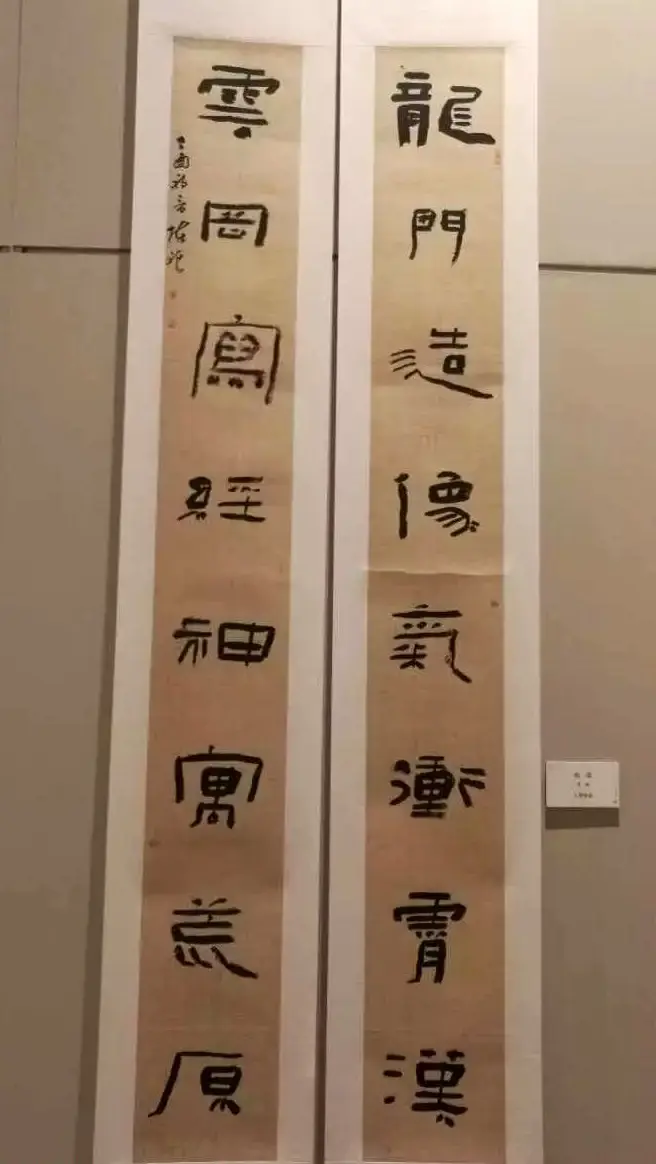 龍門造像氣衝霄漢
雲岡寫經神寓荒原